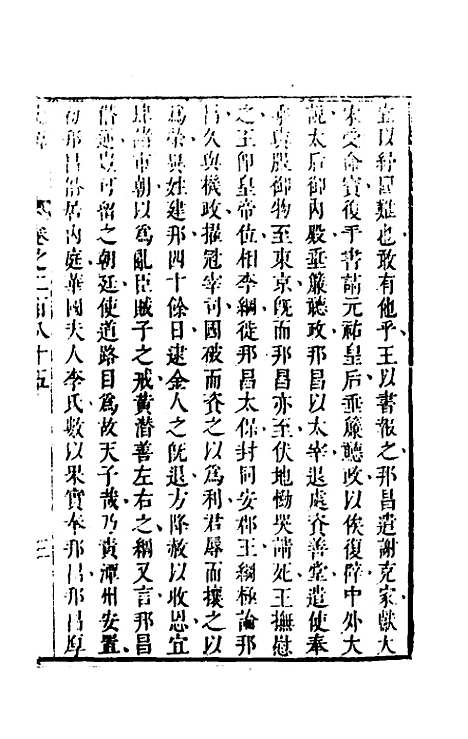 宜以紓國難也敢有他乎王以書報之邦昌遣謝克家獻大
宋受命寶復手書請元祐皇后垂簾聽政以俟復辟中外大
說太后御內殿垂簾聽政邦昌以太宰退處資善堂遣使奉
乘輿服御物至東京旣而邦昌亦至伏地慟哭請死王撫慰
之王卽皇帝位相李綱徙邦昌太保封同安郡王綱極論邦
昌久與機政擢冠宰司國破而資之以爲利君辱而攘之以
爲榮異姓建邦四十餘日逮金人之旣退方降赦以收恩宜
肆諸市朝以爲亂臣賊子之戒黃潛善左右之綱又言邦昌
僭逆豈可留之朝廷使道路目爲故天子哉乃責潭州安置
初邦昌僭居內庭華國夫人李氏數以果實奉邦昌邦昌厚
卷之二百八十五